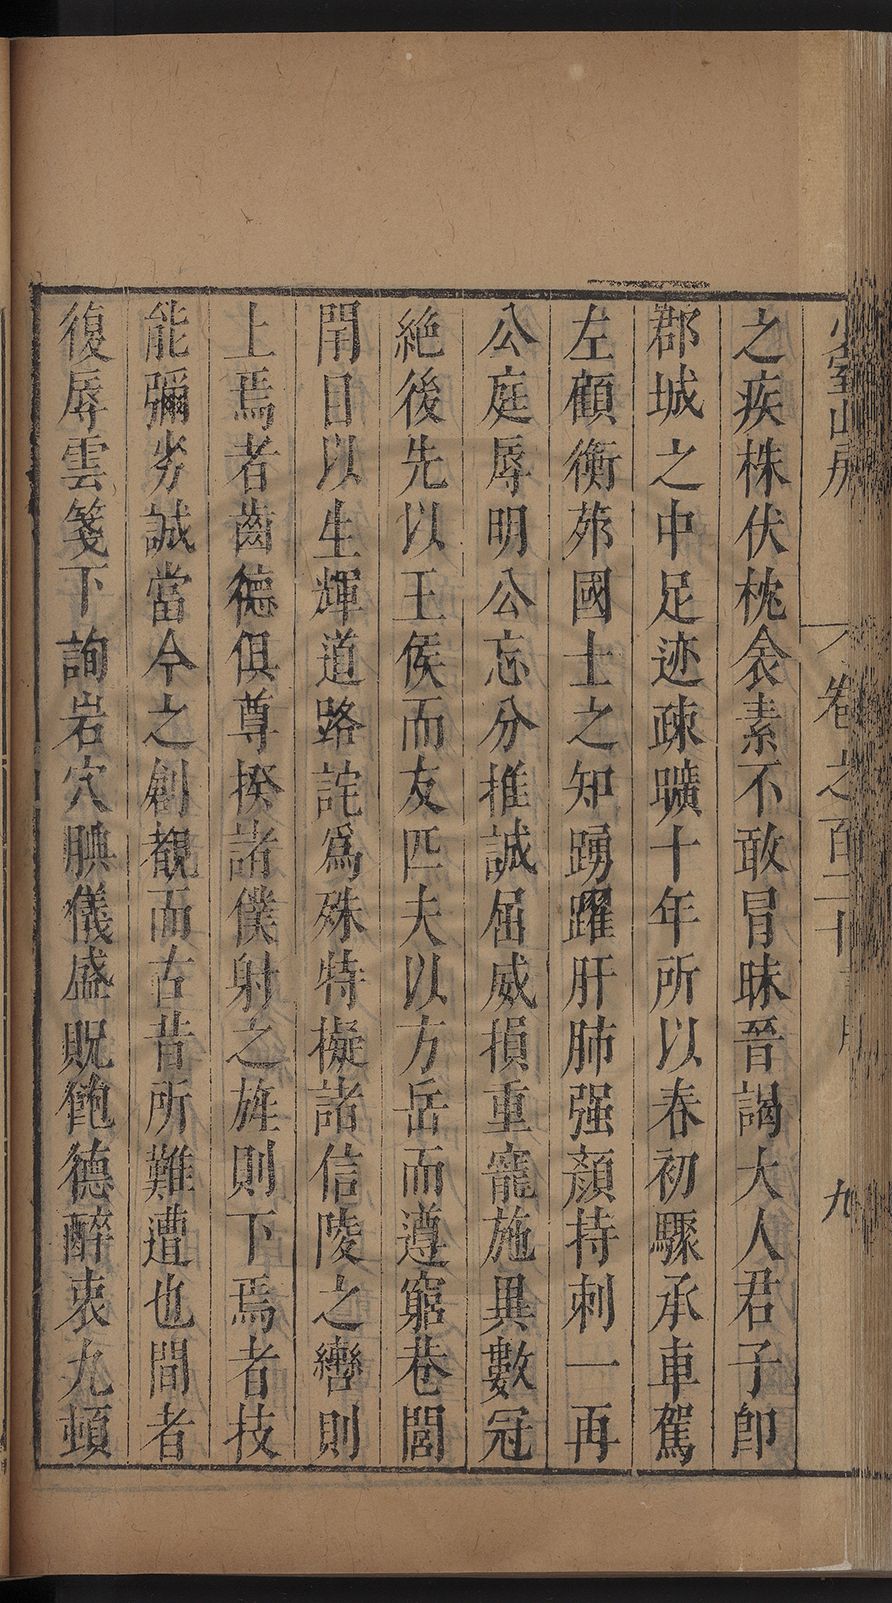 之疾株伏枕衾素不敢冒昧晉謁大人君子卽
郡城之中足迹疎曠十年所以春初驟承車駕
左顧衡茆國士之知踴躍肝肺强顏持刺一再
公庭辱明公忘分推誠屈威損重寵施異數冠
絶後先以王侯而友匹夫以方岳而遵窮巷閭
閈目以生輝道路詫爲殊特擬諸信陵之轡則
上焉者齒德俱尊揆諸僕射之旌則下焉者技
能彌劣誠當今之創覩而古昔所難遭也間者
復辱雲箋下詢岩穴腆儀盛貺飽德醉衷九頓
少室山房
卷之百二十
九